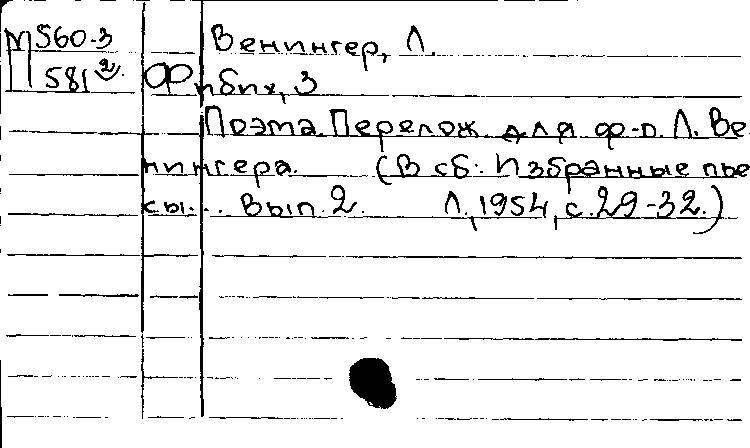 М 560-3 Венингер, Л.
581² Фибих, З
Поэма. Перелож. для ф-п. Л. Ве
нингера. (В сб.: Избранные пье
сы... Вып. 2. Л., 1954, с. 29-32.)